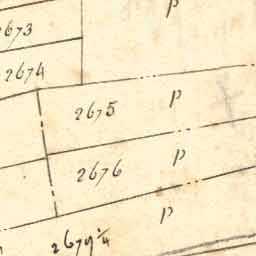 p
2673
2674
2675 p
2676 p
p
2679 1/4